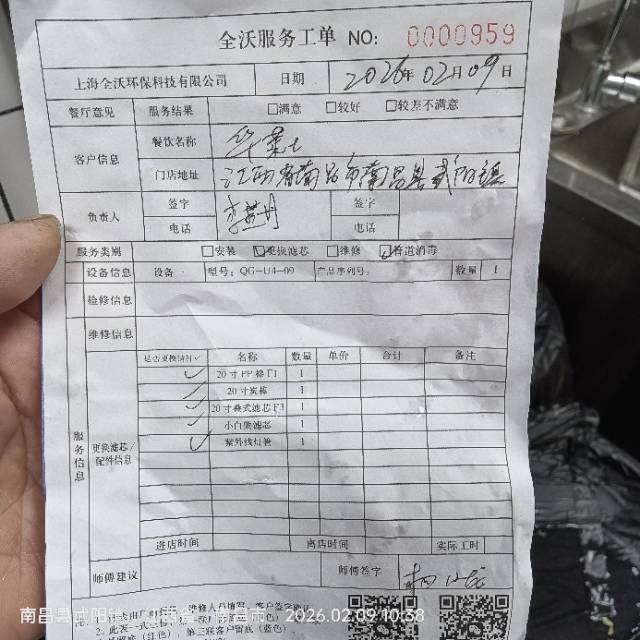 全沃服务工单 NO: 0000959
上海全沃环保科技有限公司 日期 2026年02月09日
餐厅意见 服务结果 □满意 □较好 □较差不满意
客户信息 餐饮名称 华莱士
门店地址 江西省南昌市南昌县武阳镇
负责人 签字 签字
电话 电话
服务类别 □安装 ☑更换滤芯 □维修 ☑管道消毒
设备信息 设备 型号: QG-U4-09 产品序列号: 数量 1
检修信息
维修信息
服务信息
更换滤芯/配件信息
是否更换请打✓ 名称 数量 单价 合计 备注
✓ 20寸PP棉 1
✓ 20寸炭棒 1
✓ 20寸叠式滤芯 1
✓ 小白 滤芯 1
✓ 紫外线灯管 1
进店时间 离店时间 实际工时
师傅建议 师傅签字
南昌县武阳镇 江西省 南昌市 2026.02.09 10:38